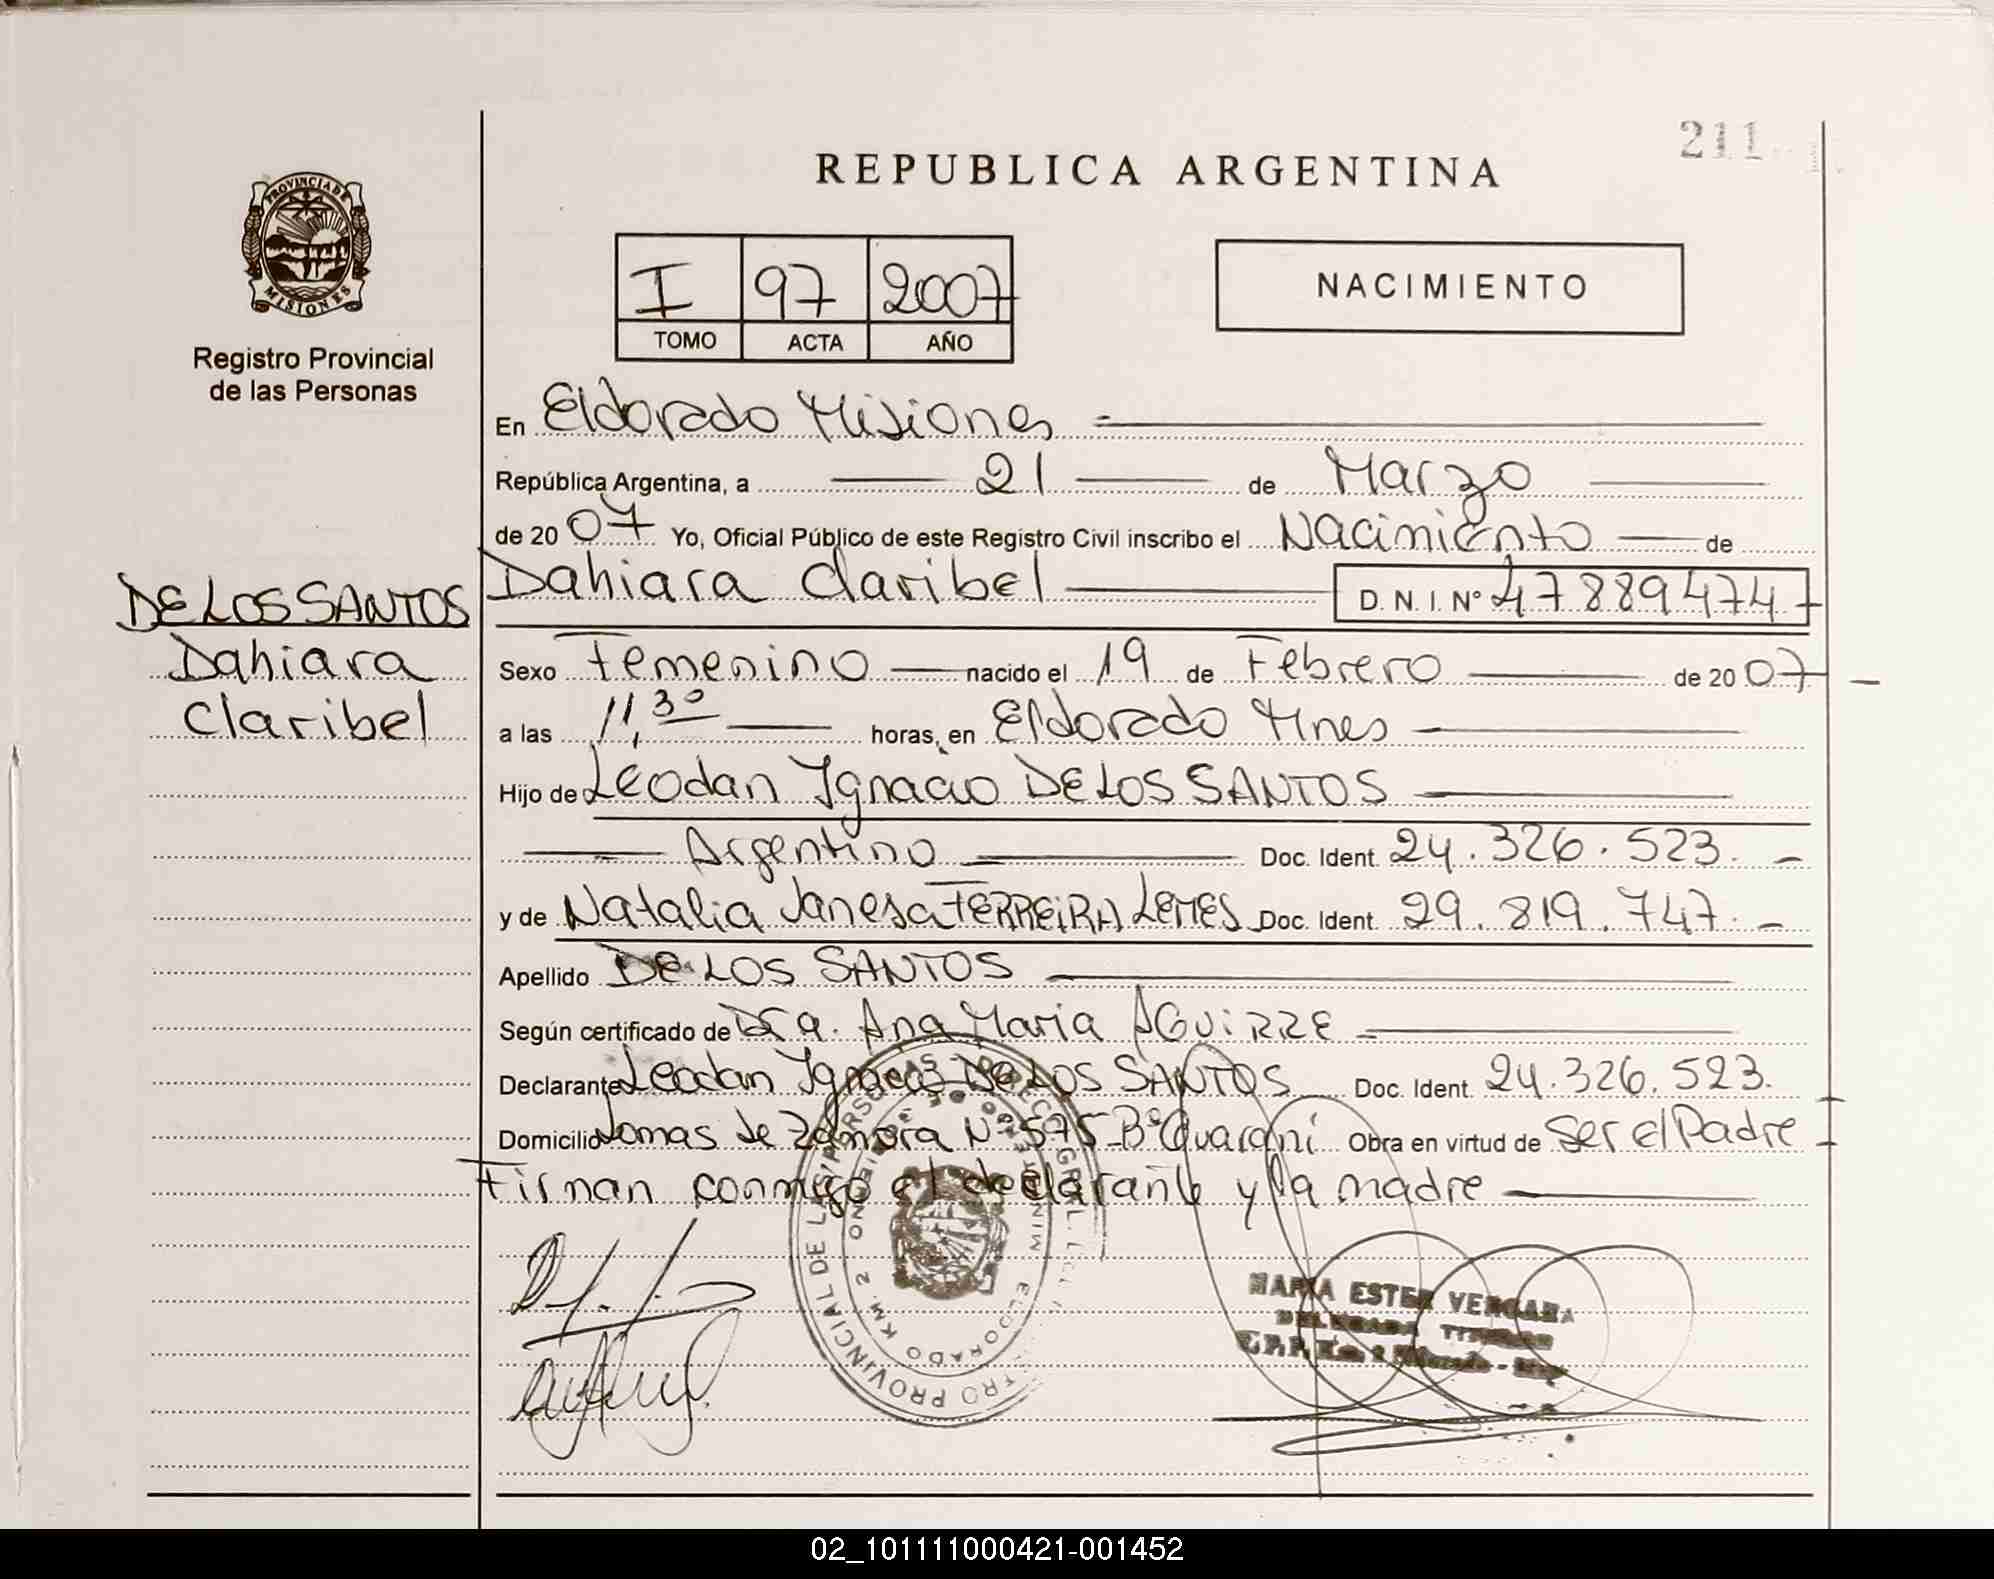 211
REPUBLICA ARGENTINA
PROVINCIA DE
MISIONES
Registro Provincial
de las Personas
I 97 2007
TOMO ACTA AÑO
NACIMIENTO
En Eldorado Misiones
República Argentina, a 21 de Marzo
de 2007 Yo, Oficial Público de este Registro Civil inscribo el Nacimiento de
DE LOS SANTOS
Dahiara
Claribel
Dahiara Claribel D. N. I. Nº 47889474
Sexo Femenino nacido el 19 de Febrero de 2007
a las 11,30 horas, en Eldorado Mnes
Hijo de Leodan Ygnacio DE LOS SANTOS
Argentino Doc. Ident. 24.326.523.
y de Natalia Janesa FERREIRA LEMES Doc. Ident. 29.819.747.
Apellido DE LOS SANTOS
Según certificado de Dra. Ana Maria AGUIRRE
Declarante Leodan Ygnacio DE LOS SANTOS Doc. Ident. 24.326.523.
Domicilio Lomas de Zamora Nº 575 Bº Guarani Obra en virtud de Ser el Padre
Firman conmigo el declarante y la madre
MARIA ESTER VERGARA
DELEGADA TITULAR
02_101111000421-001452